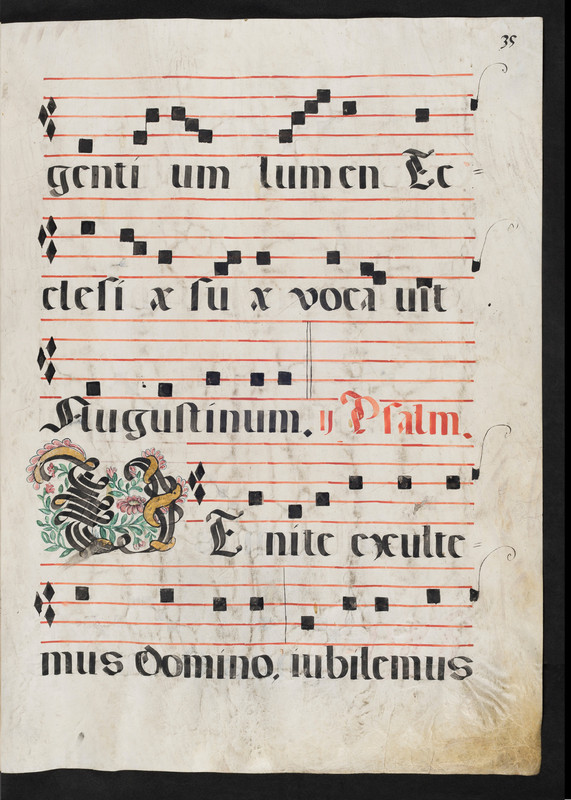 35
genti um lumen Ec=
clesi æ su æ vocavit
Augustinum. ij Psalm.
VE nite exulte=
mus Domino, iubilemus